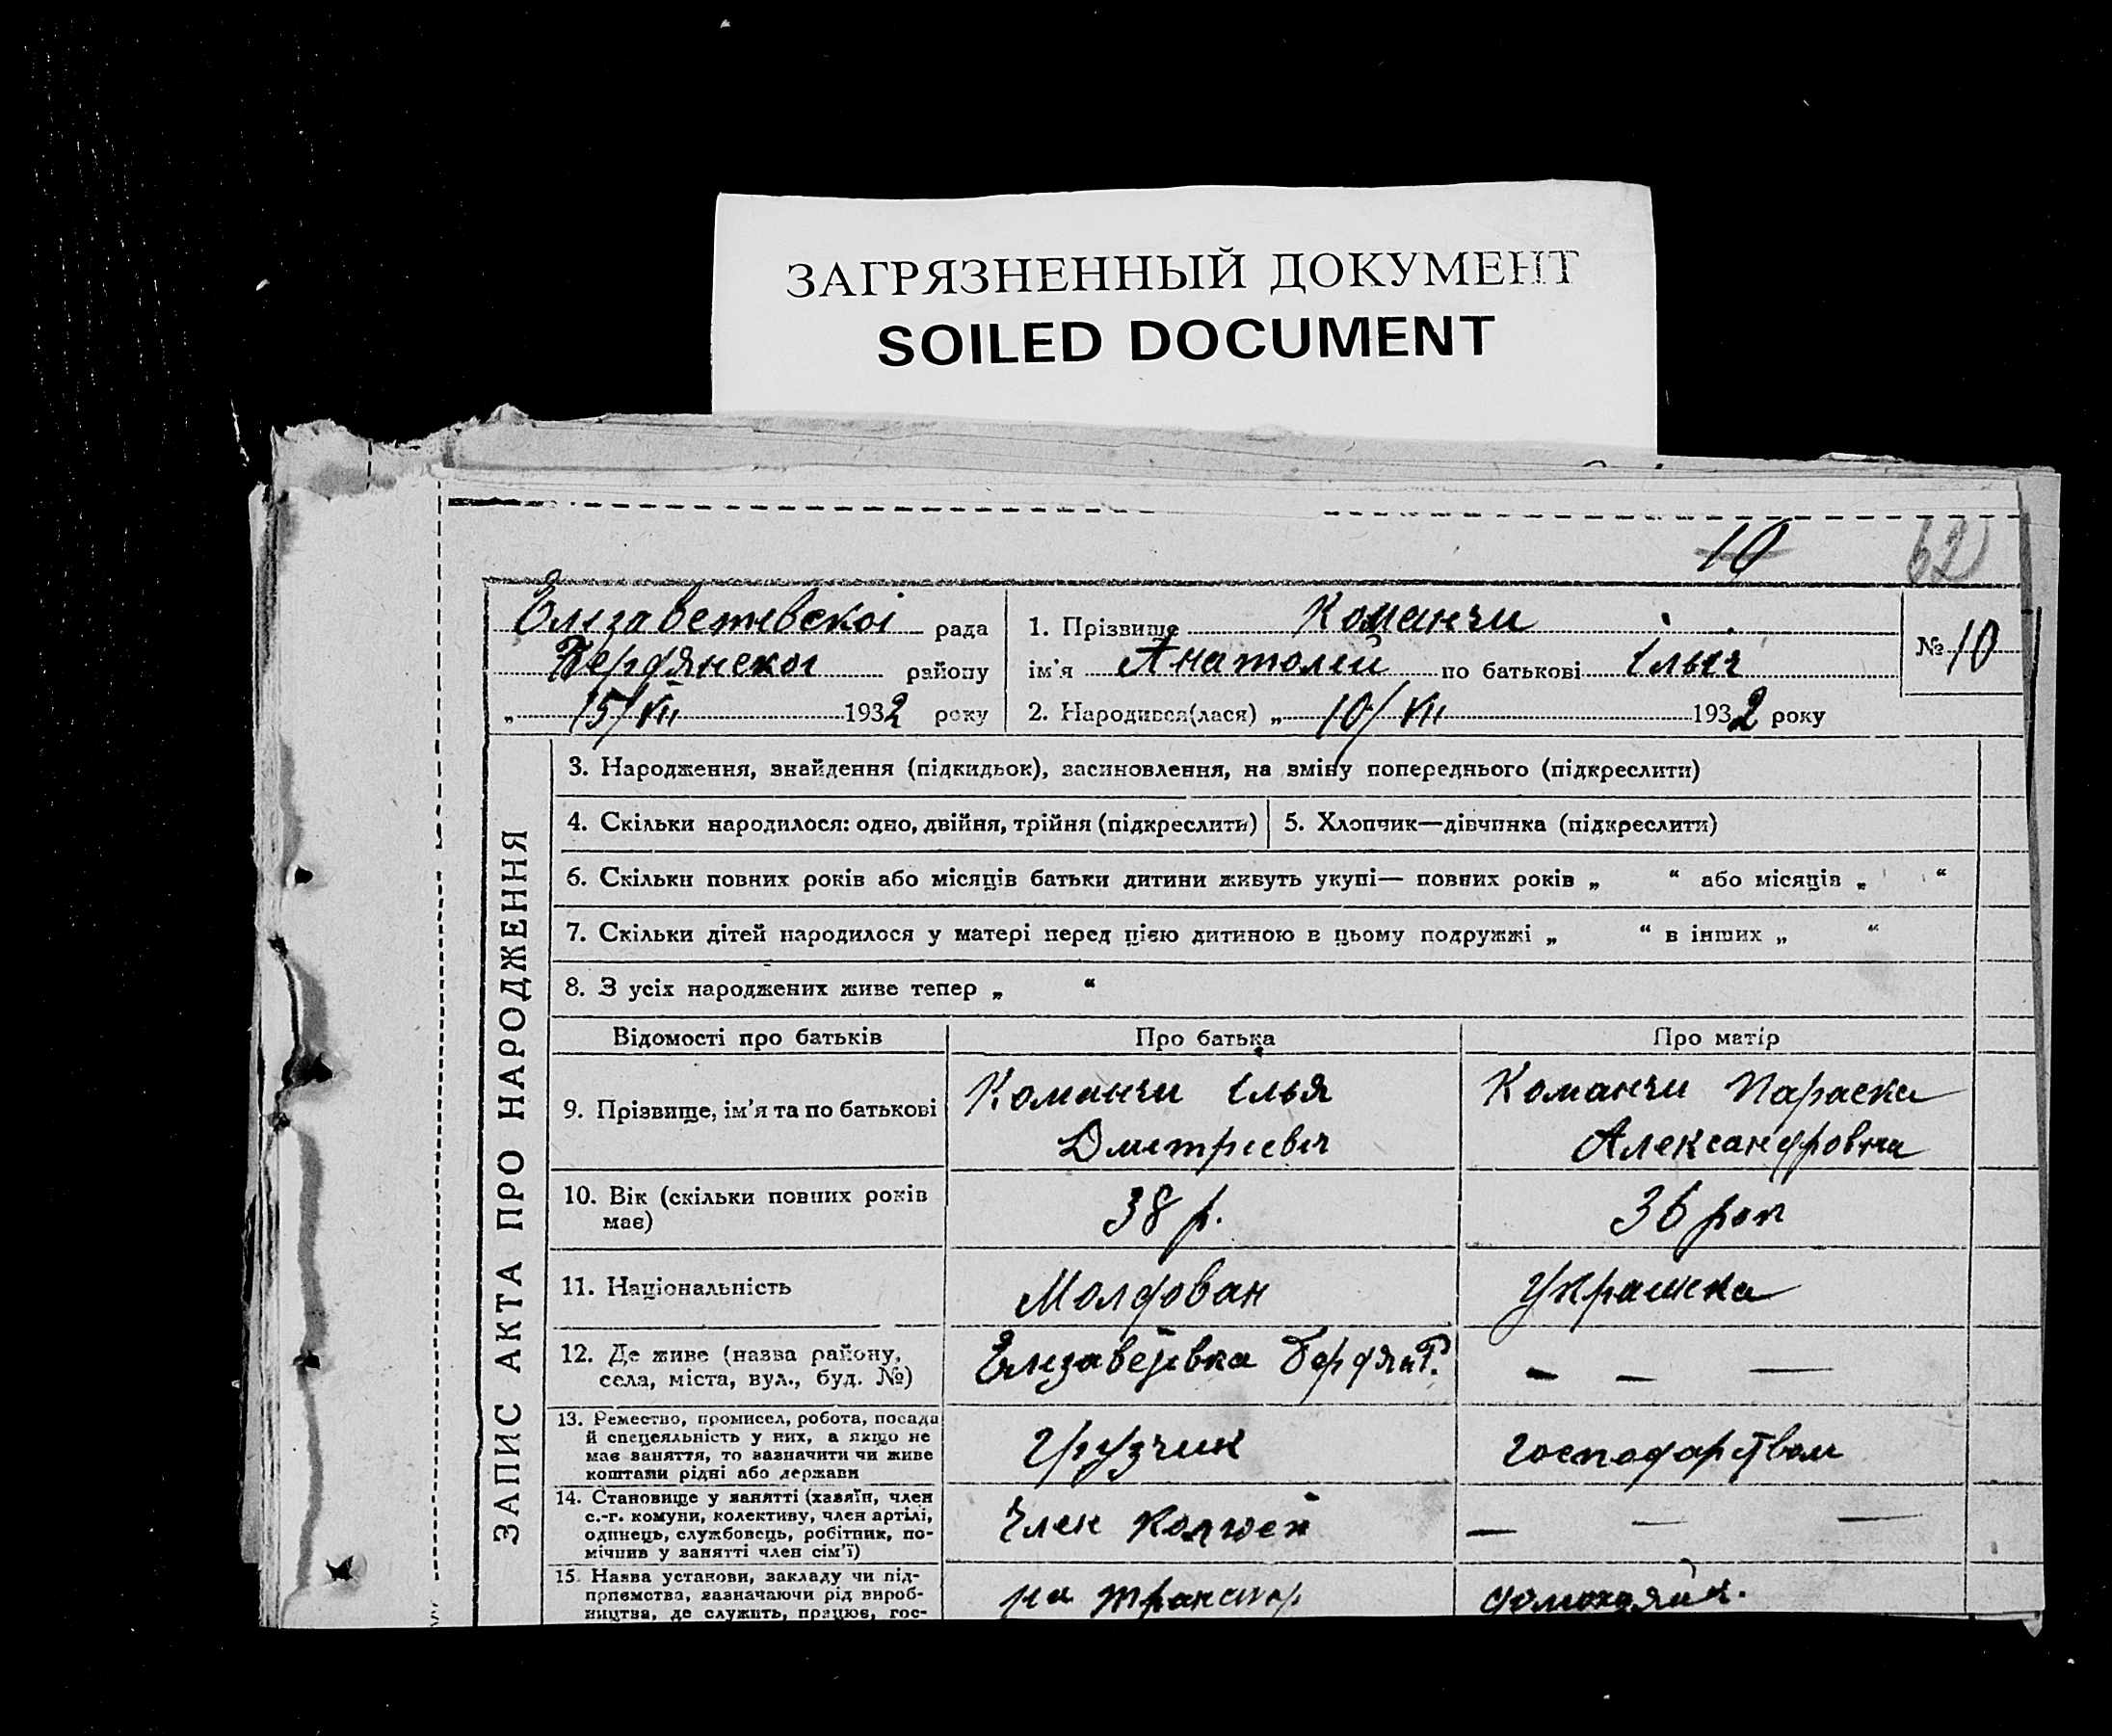 ЗАГРЯЗНЕННЫЙ ДОКУМЕНТ
SOILED DOCUMENT
10 62
Єлізаветівської рада
Бердянської району
„ 15/VII 1932 року
1. Прізвище Команчи
ім'я Анатолій по батькові Ілліч
2. Народився(лася) „ 10/VII 1932 року
№ 10
ЗАПИС АКТА ПРО НАРОДЖЕННЯ
3. Народження, знайдення (підкидьок), засиновлення, на зміну попереднього (підкреслити)
4. Скільки народилося: одно, двійня, трійня (підкреслити) 5. Хлопчик—дівчинка (підкреслити)
6. Скільки повних років або місяців батьки дитини живуть укупі— повних років „ “ або місяців „ “
7. Скільки дітей народилося у матері перед цією дитиною в цьому подружжі „ “ в інших „ “
8. З усіх народжених живе тепер „ “
Відомості про батьків Про батька Про матір
9. Прізвище, ім'я та по батькові
Команчи Ілья
Дмітрієвіч
Команчи Параска
Александровна
10. Вік (скільки повних років
має)
38 р. 36 рок
11. Національність Молдован Украінка
12. Де живе (назва району,
села, міста, вул., буд. №)
Єлізаветівка Бердян Р. — — —
13. Ремество, промисел, робота, посада
й спецеяльність у них, а якщо не
має заняття, то зазначити чи живе
коштами рідні або держави
грузчик господарством
14. Становище у занятті (хазяїн, член
с.-г. комуни, колективу, член артілі,
одинець, службовець, робітник, по-
мічнив у занятті член сім'ї)
член колгосп — — —
15. Назва установи, закладу чи під-
приємства, зазначаючи рід вироб-
ництва, де служить, працює, гос-
на транспор домохазяйк.